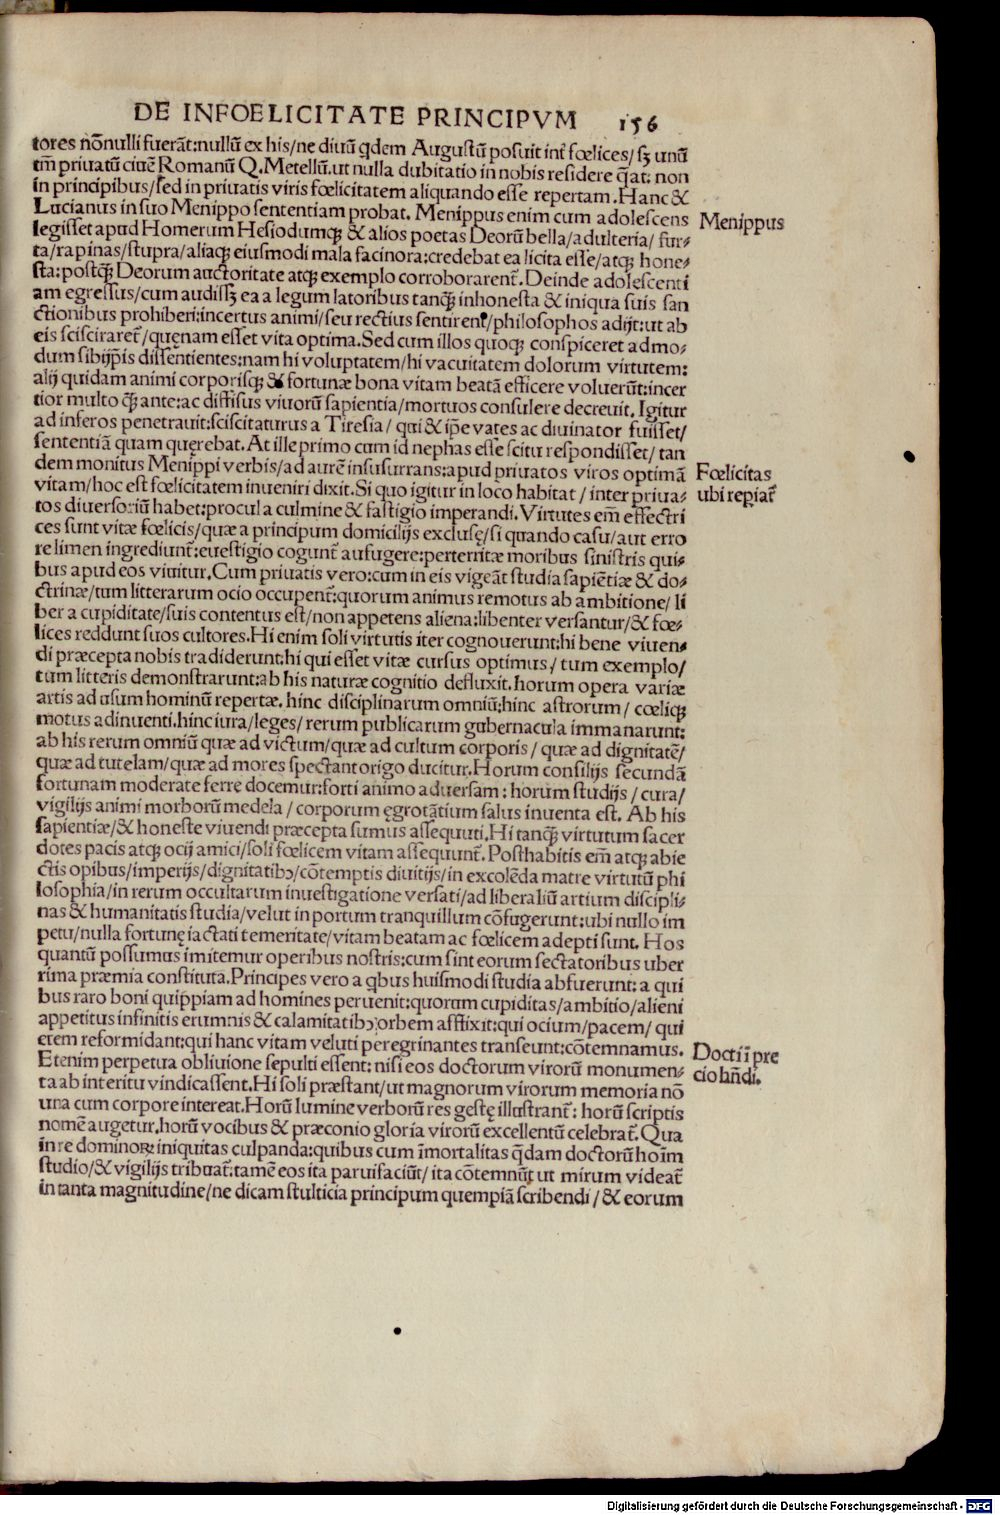 DE INFOELICITATE PRINCIPVM 156
tores nōnulli fuerāt:nullū ex his/ne diuū qdem Augustū posuit int̄ fœlices/sꝫ unū
tm̄ priuatū ciuē Romanū Q.Metellū.ut nulla dubitatio in nobis residere q̄at: non
in principibus/sed in priuatis viris fœlicitatem aliquando esse repertam.Hanc &
Lucianus in suo Menippo sententiam probat. Menippus enim cum adolescens
Menippus
legisset apud Homerum Hesiodumqꝫ & alios poetas Deorū bella/adulteria/ fur⸗
ta/rapinas/stupra/aliaqꝫ eiusmodi mala facinora:credebat ea licita esse/atqꝫ hone⸗
sta:postq̄ꝫ Deorum auctoritate atqꝫ exemplo corroborarent̄. Deinde adolescenti
am egressus/cum audissꝫ ea a legum latoribus tanq̄ꝫ inhonesta & iniqua suis san
ctionibus prohiberi:incertus animi/seu rectius sentirent̄/philosophos adijt:ut ab
eis scisciraret̄/quęnam esset vita optima.Sed cum illos quoqꝫ conspiceret admo⸗
dum sibijp̄is dissentientes:nam hi voluptatem/hi vacuitatem dolorum virtutem:
alij quidam animi corporisqꝫ & fortunæ bona vitam beatā efficere voluerūt:incer
tior multo q̄ꝫ ante:ac diffisus viuorū sapientia/mortuos consulere decreuit. Igitur
ad inferos penetrauit:sciscitaturus a Tiresia/ qui & ip̄e vates ac diuinator fuisset/
sententiā quam quęrebat. At ille primo cum id nephas esse scitu respondisset/ tan
dem monitus Menippi verbis/ad aurē insusurrans:apud priuatos viros optimā
Fœlicitas
vitam/hoc est fœlicitatem inueniri dixit.Si quo igitur in loco habitat / inter priua⸗
ubi repiat̄
tos diuersoriū habet:procul a culmine & fastigio imperandi. Virtutes em̄ effectri
ces sunt vitæ fœlicis/quæ a principum domicilijs exclusę/si quando casu/aut erro
re limen ingrediunt̄:euestigio cogunt̄ aufugere:perterritæ moribus sinistris qui⸗
bus apud eos viuitur.Cum priuatis vero:cum in eis vigeāt studia sapiētiæ & do⸗
ctrinæ/tum litterarum ocio occupent̄:quorum animus remotus ab ambitione/ li
ber a cupiditate/suis contentus est/non appetens aliena:libenter versantur/& fœ⸗
lices reddunt suos cultores.Hi enim soli virtutis iter cognouerunt:hi bene viuen⸗
di præcepta nobis tradiderunt:hi qui esset vitæ cursus optimus/ tum exemplo/
tum litteris demonstrarunt:ab his naturæ cognitio defluxit.horum opera variæ
artis ad usum hominū repertæ. hinc disciplinarum omniū:hinc astrorum/ cœliqꝫ
motus adinuenti.hinc iura/leges/ rerum publicarum gubernacula immanarunt:
ab his rerum omniū quæ ad victum/quæ ad cultum corporis / quæ ad dignitatē/
quæ ad tutelam/quæ ad mores spectant origo ducitur.Horum consilijs secundā
fortunam moderate ferre docemur:forti animo aduersam: horum studijs / cura/
vigilijs animi morborū medela / corporum ęgrotātium salus inuenta est. Ab his
sapientiæ/& honeste viuendi præcepta sumus assequuti.Hi tanq̄ꝫ virtutum sacer
dotes pacis atqꝫ ocij amici/soli fœlicem vitam assequunt̄. Posthabitis em̄ atqꝫ abie
ctis opibus/imperijs/dignitatibꝰ/cōtemptis diuitijs/in excolēda matre virtutū phi
losophia/in rerum occultarum inuestigatione versati/ad liberaliū artium discipli⸗
nas & humanitatis studia/velut in portum tranquillum cōfugerunt:ubi nullo im
petu/nulla fortunę iactati temeritate/vitam beatam ac fœlicem adepti sunt. Hos
quantū possumus imitemur operibus nostris:cum sint eorum sectatoribus uber
rima præmia constituta.Principes vero a qbus huismodi studia abfuerunt: a qui
bus raro boni quippiam ad homines peruenit:quorum cupiditas/ambitio/alieni
appetitus infinitis erumnis & calamitatibꝰ orbem afflixit:qui ocium/pacem/ qui
etem reformidant:qui hanc vitam veluti peregrinantes transeunt:cōtemnamus.
Docti ī pre
Etenim perpetua obliuione sepulti essent: nisi eos doctorum virorū monumen⸗
cio hn̄di.
ta ab interitu vindicassent.Hi soli præstant/ut magnorum virorum memoria nō
una cum corpore intereat.Horū lumine verborū res gestę illustrant̄: horū scriptis
nomē augetur.horū vocibus & præconio gloria virorū excellentū celebrat̄. Qua
in re dominoꝝ iniquitas culpanda:quibus cum īmortalitas q̄dam doctorū hoīm
studio/& vigilijs tribuat̄:tamē eos ita paruifaciūt/ ita cōtemnūt ut mirum videat̄
in tanta magnitudine/ne dicam stulticia principum quempiā scribendi / & eorum
Digitalisierung gefördert durch die Deutsche Forschungsgemeinschaft - DFG